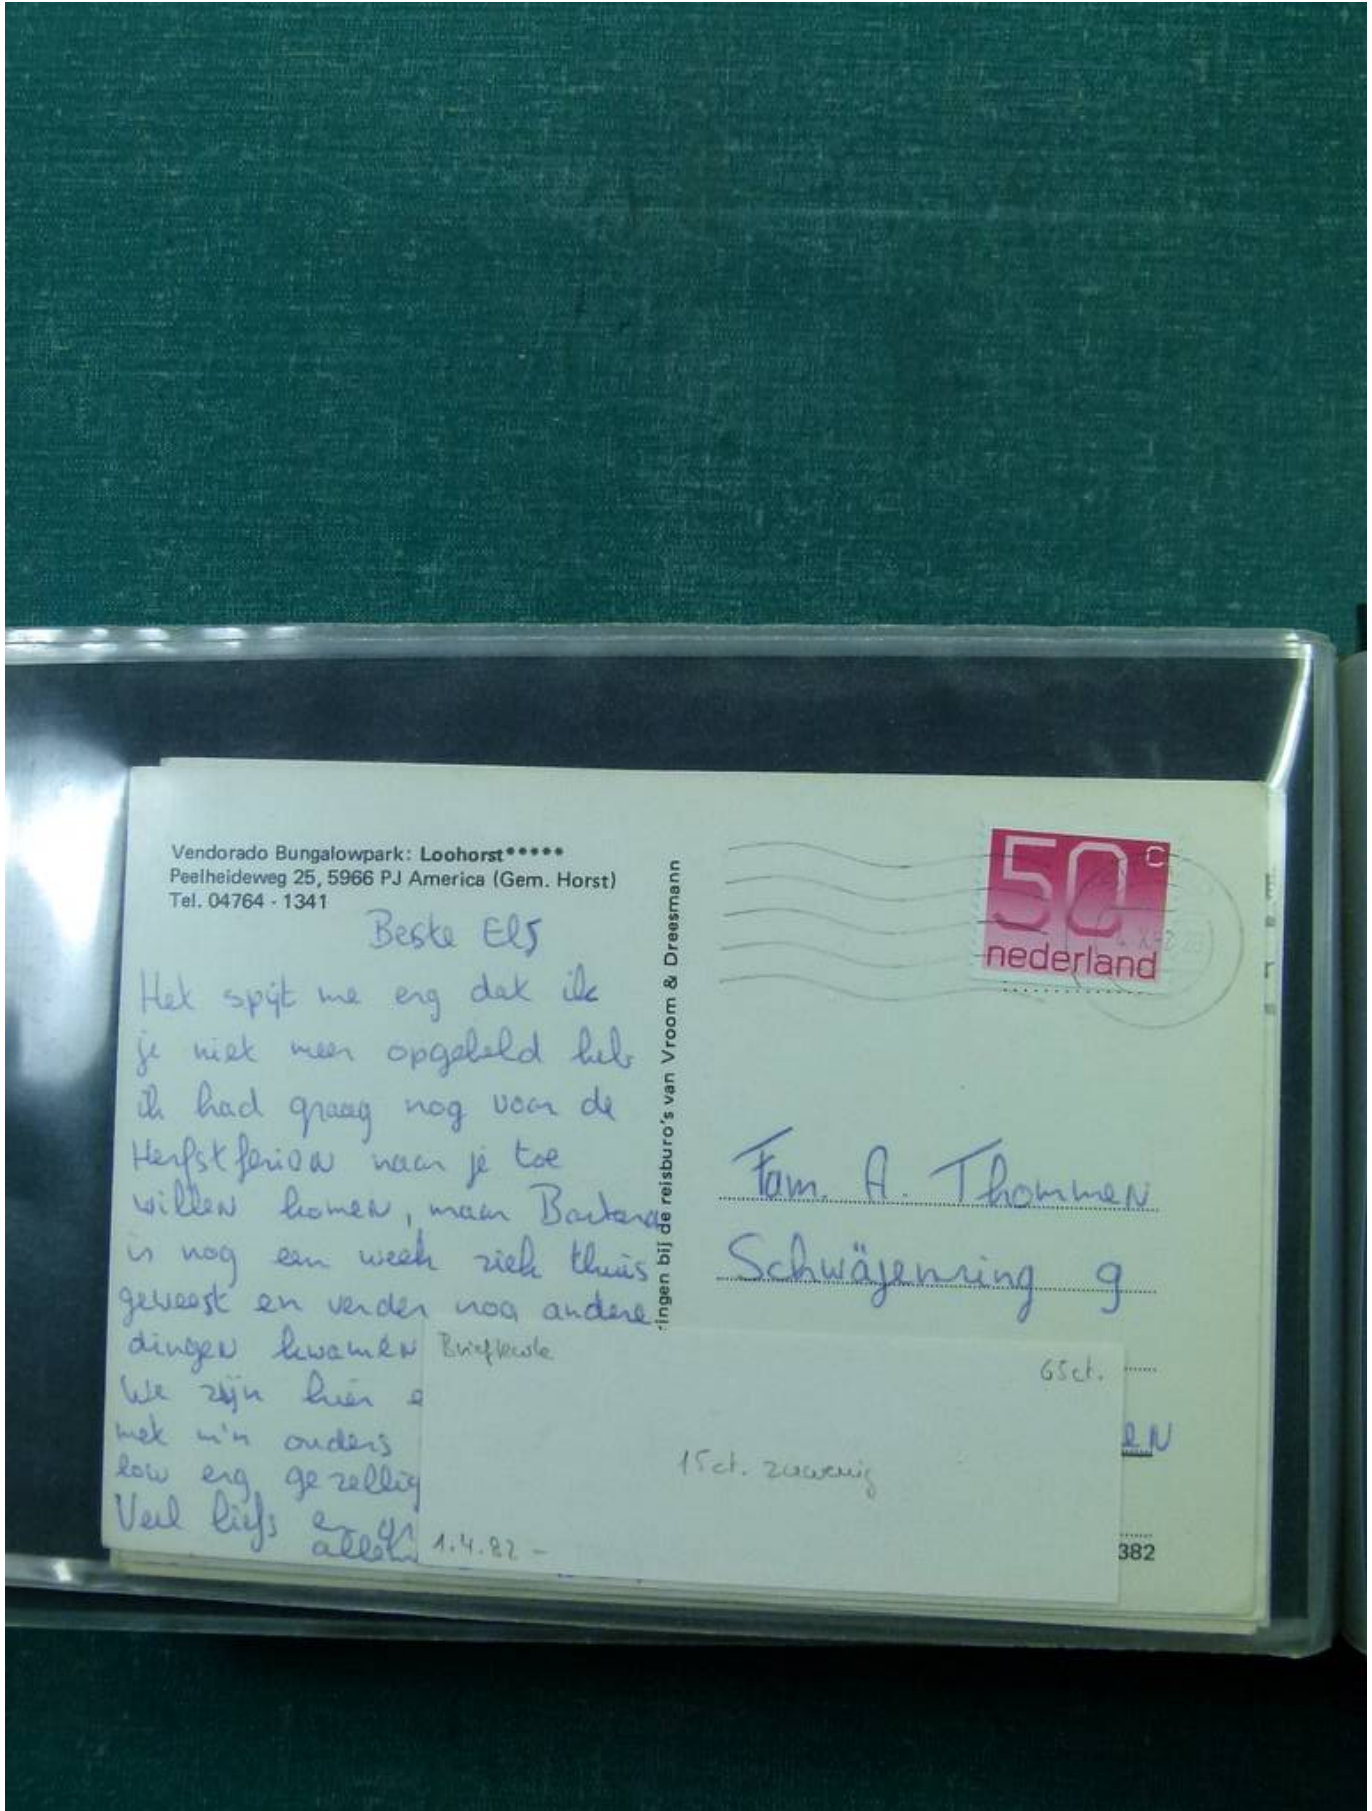 Vendorado Bungalowpark: Loohorst*****
Peelheideweg 25, 5966 PJ America (Gem. Horst)
Tel. 04764 - 1341
Beste Els
Het spijt me erg dat ik
je niet meer opgebeld heb
ik had graag nog voor de
Herfstferien naar je toe
willen komen, maar Barbara
is nog een week ziek thuis
geweest en verder nog andere
dingen kwamen
We zijn hier
met m'n ouders
low erg gezellig
Veel liefs
ringen bij de reisburo's van Vroom & Dreesmann
50 c
nederland
Fam. A. Thommen
9
en
382
Briefkarte
65ct.
15ct. zuwenig
1.4.82 -